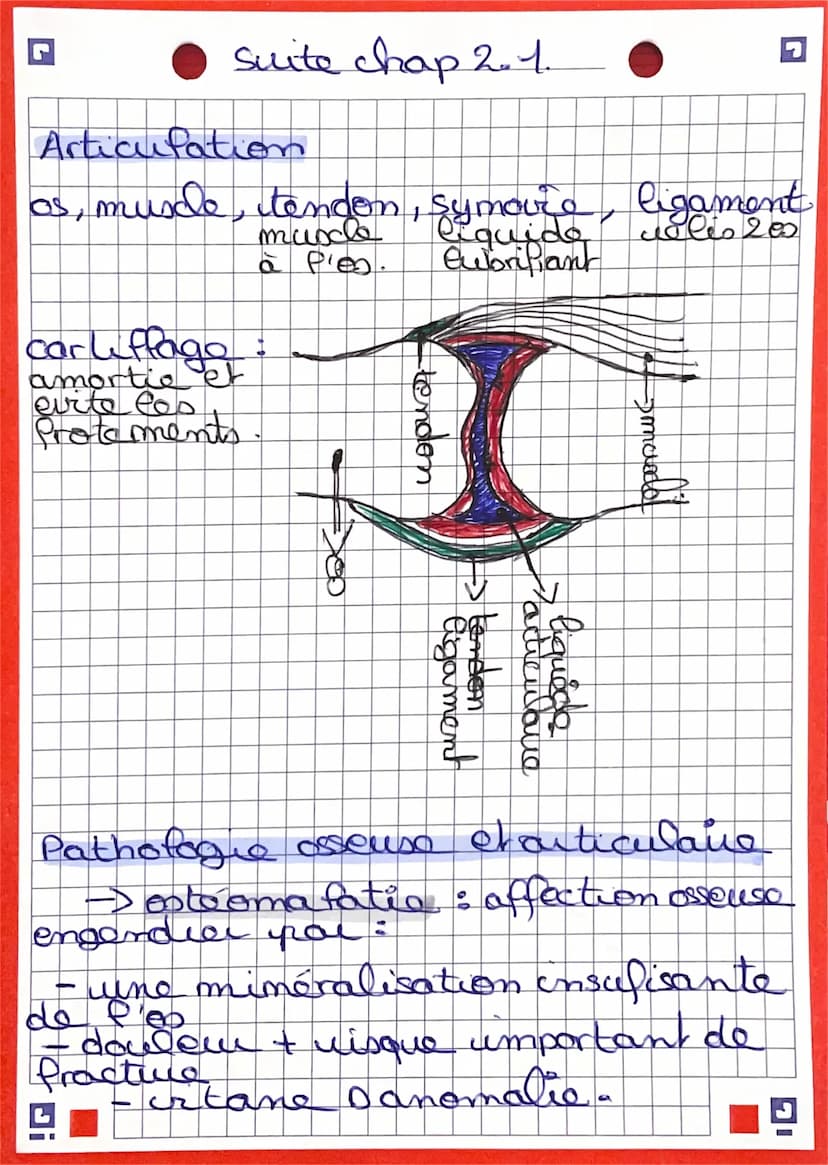 suite chap 2.1.
Articulation
os, muscle, tendon, synovie, ligament
muscle liquide relie 2 os
à l'os. lubrifiant
cartillage :
amortie et
evite les
frotements.
tendon
muscle
os
liquide
articulaire
tendon
ligament
Pathologie osseuse et articulaire
-> ostéomalatie : affection osseuse
engendrer par :
- une minéralisation insufisante
de l'os
- douleur + risque important de
fracture